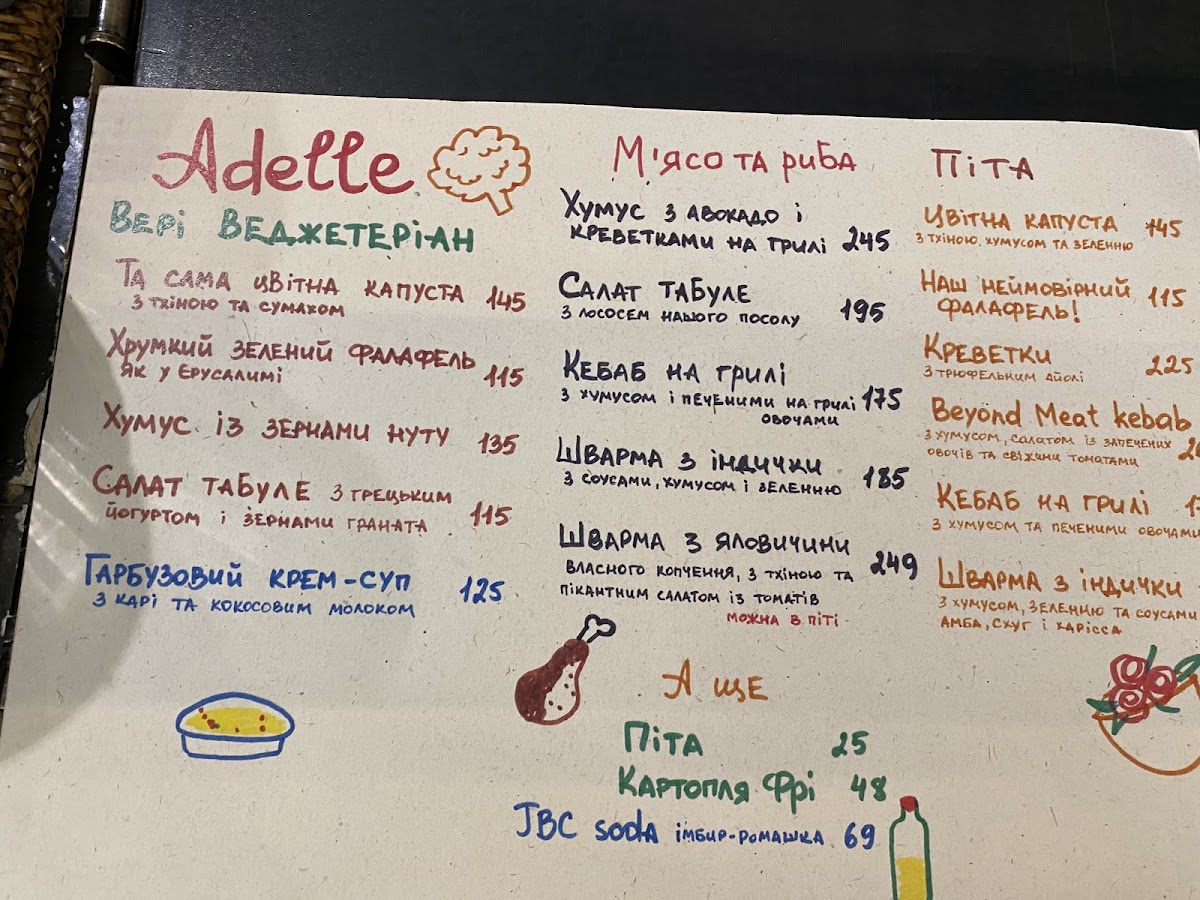 Adelle
Вері Веджетеріан
Та сама цвітна капуста 145
з тхіною та сумахом
Хрумкий зелений фалафель
як у Єрусалимі 115
Хумус із зернами нуту 135
Салат табуле з грецьким
йогуртом і зернами граната 115
Гарбузовий крем-суп 125
з карі та кокосовим молоком
М'ясо та риба
Хумус з авокадо і
креветками на грилі 245
Салат табуле 195
з лососем нашого посолу
Кебаб на грилі 175
з хумусом і печеними на грилі
овочами
Шварма з індички 185
з соусами, хумусом і зеленню
Шварма з яловичини 249
власного копчення, з тхіною та
пікантним салатом із томатів
можна в піті
А ще
Піта 25
Картопля Фрі 48
JBC soda імбир-ромашка 69
Піта
Цвітна капуста 145
з тхіною, хумусом та зеленню
Наш неймовірний 115
фалафель!
Креветки 225
з трюфельним айолі
Beyond Meat kebab
з хумусом, салатом із запечених
овочів та свіжини томатами
Кебаб на грилі
з хумусом та печеними овочами
Шварма з індички
з хумусом, зеленню та соусами
амба, схуг і харісса